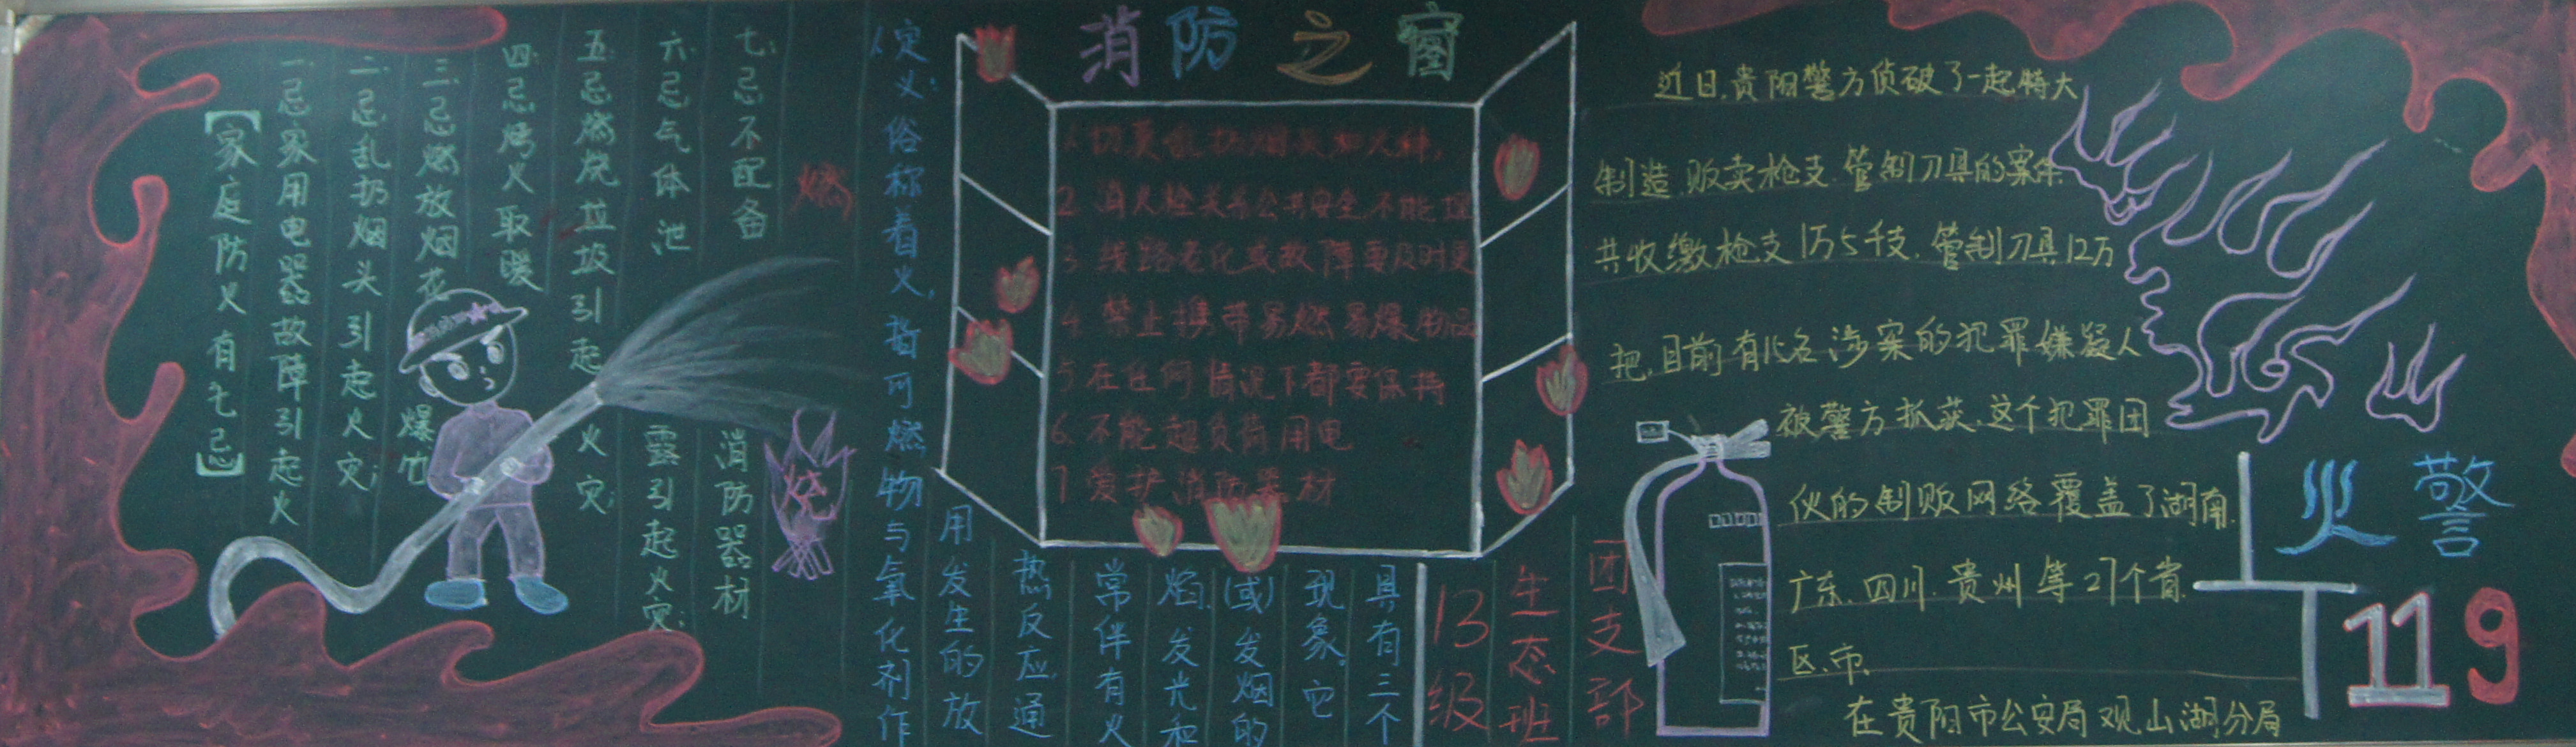 消防之窗
【家庭防火有七忌】
一忌家用电器故障引起火
二忌乱扔烟头引起火灾;
三忌燃放烟花爆竹
四忌烤火取暖
五忌燃烧垃圾引起火灾;
六忌气体泄露引起火灾;
七忌不配备消防器材
燃
烧
定义:俗称着火,指可燃物与氧化剂作
用发生的放
热反应,通
常伴有火
焰.发光和
(或)发烟的
现象。它
具有三个
1.切莫乱扔烟头和火种,
2.消火栓关系公共安全,不能埋
3.线路老化或故障要及时更
4.禁止携带易燃易爆物品
5.在任何情况下都要保持
6.不能超负荷用电
7.爱护消防器材
13级
生态班
团支部
近日,贵阳警方侦破了一起特大
制造.贩卖枪支.管制刀具的案件
共收缴枪支1万5千支.管制刀具12万
把,目前有15名涉案的犯罪嫌疑人
被警方抓获.这个犯罪团
伙的制贩网络覆盖了湖南.
广东.四川.贵州等27个省.
区.市.
在贵阳市公安局观山湖分局
火警
119